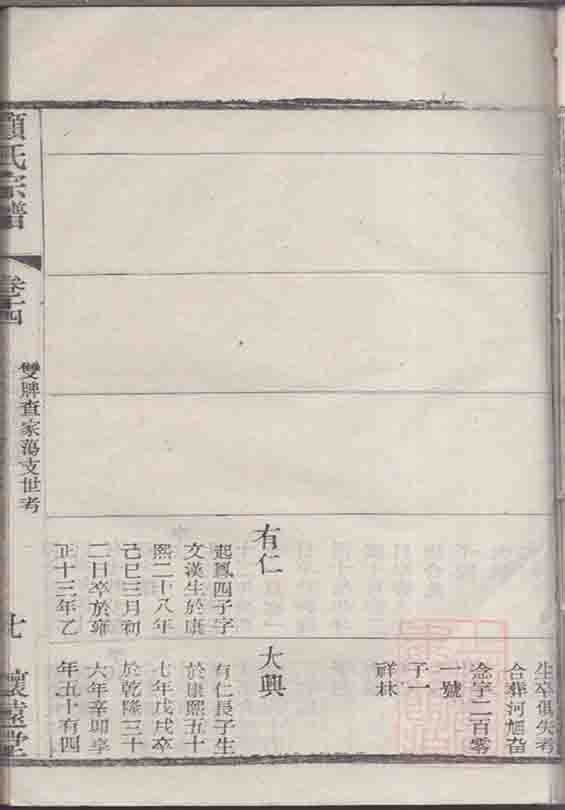 生卒俱失考
合葬河旭畓
念字二百零
一號
子一
祥林
有仁
起鳳四子字
文漢生於康
熙二十八年
己巳三月初
二日卒於雍
正十三年乙
大興
有仁長子生
於康熙五十
七年戊戌卒
於乾隆三十
六年辛卯享
年五十有四
顧氏宗譜
卷十四
雙牌查家蕩支世考
七
懷遠堂